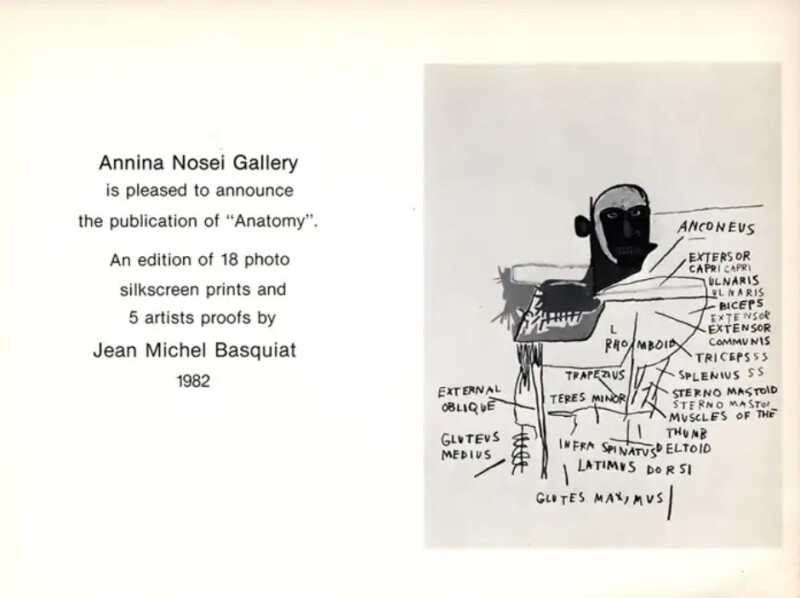 Annina Nosei Gallery
is pleased to announce
the publication of “Anatomy”.
An edition of 18 photo
silkscreen prints and
5 artists proofs by
Jean Michel Basquiat
1982
ANCONEUS
EXTERSOR
CAPRI CAPRI
ULNARIS
ULNARIS
BICEPS
EXTENSOR
EXTENSOR
COMMUNIS
L
RHOMBOID
TRICEPS S S
TRAPEZIUS
SPLENIUS S S
EXTERNAL
OBLIQUE
TERES MINOR
STERNO MASTOID
STERNO MASTOI
MUSCLES OF THE
THUMB
GLUTEUS
MEDIUS
INFRA SPINATUS
DELTOID
LATIMUS DORSI
GLUTES MAXIMUS